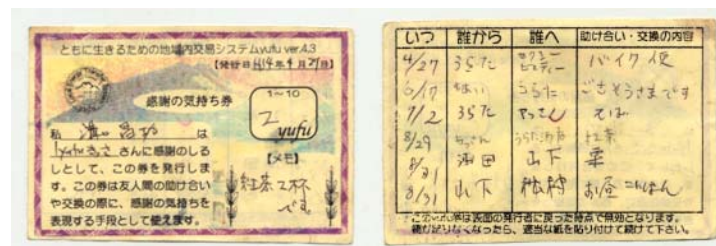 ともに生きるための地域内交易システムyufu ver.4.3
【発行日H14年4月27日】
感謝の気持ち券
1~10
2 yufu
私 は
さんに感謝のしる
しとして、この券を発行しま
す。この券は友人間の助け合い
や交換の際に、感謝の気持ちを
表現する手段として使えます。
【メモ】
紅茶2杯
です。
いつ 誰から 誰へ 助け合い・交換の内容
4/27 うらた バイク便
6/17 ごちそうさまです
7/2 うらた やっさん そば
8/29 紅茶
8/31 山下 栗
8/31 山下 お昼ごはん
この は表面の発行者に戻った時点で無効となります。
欄が足りなくなったら、適当な紙を貼り付けて続けて下さい。